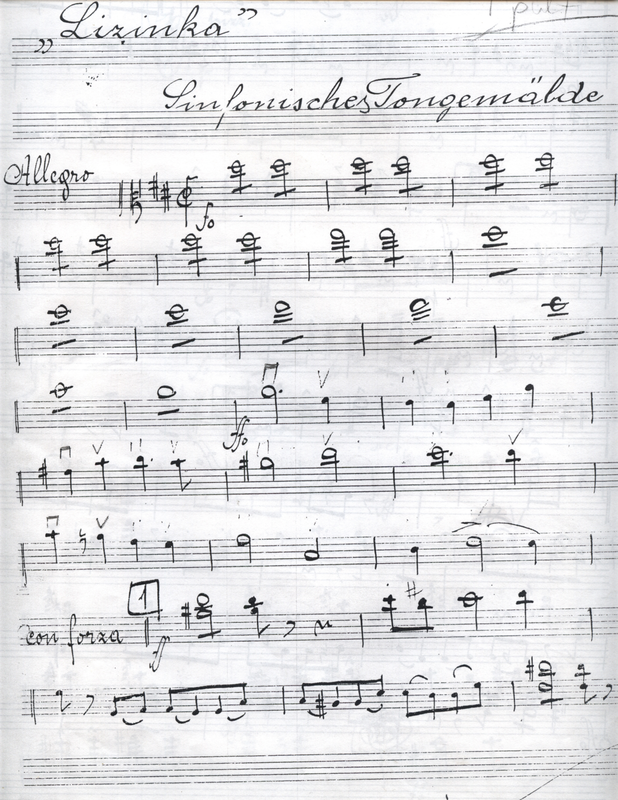 „Lizinka”
Sinfonisches Tongemälde
Allegro
fo
ffo
1
con forza
ff